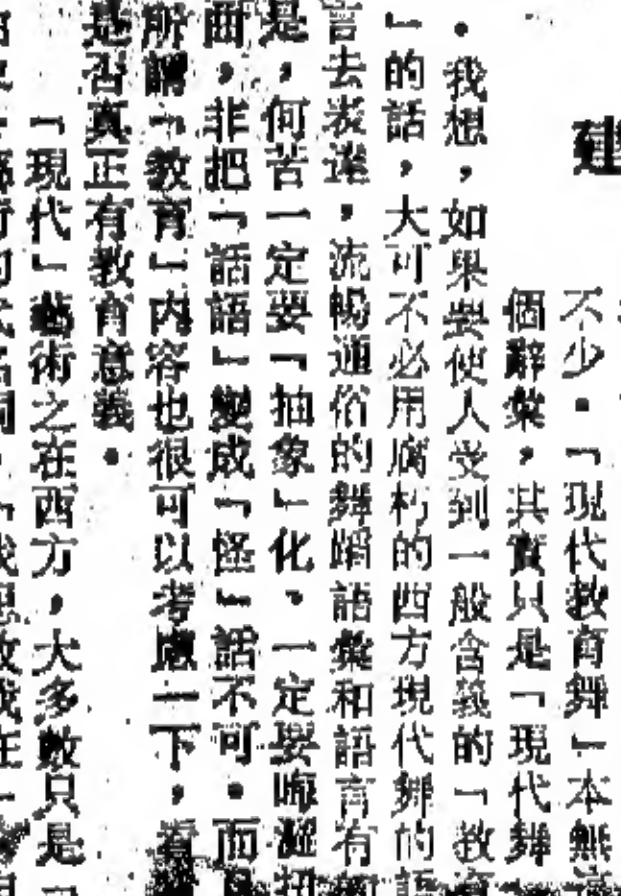 建
不少。「現代教育舞」本無這
個辭彙,其實只是「現代舞
。我想,如果要使人受到一般含義的「教育
」的話,大可不必用腐朽的西方現代舞的語
言去表達,流暢通俗的舞蹈語彙和語言有
是,何苦一定要「抽象」化。一定要晦澀扭
曲,非把「話語」變成「怪」話不可。而
所謂「教育」內容也很可以考慮一下,看
是否真正有教育意義。
「現代」藝術之在西方,大多數只是